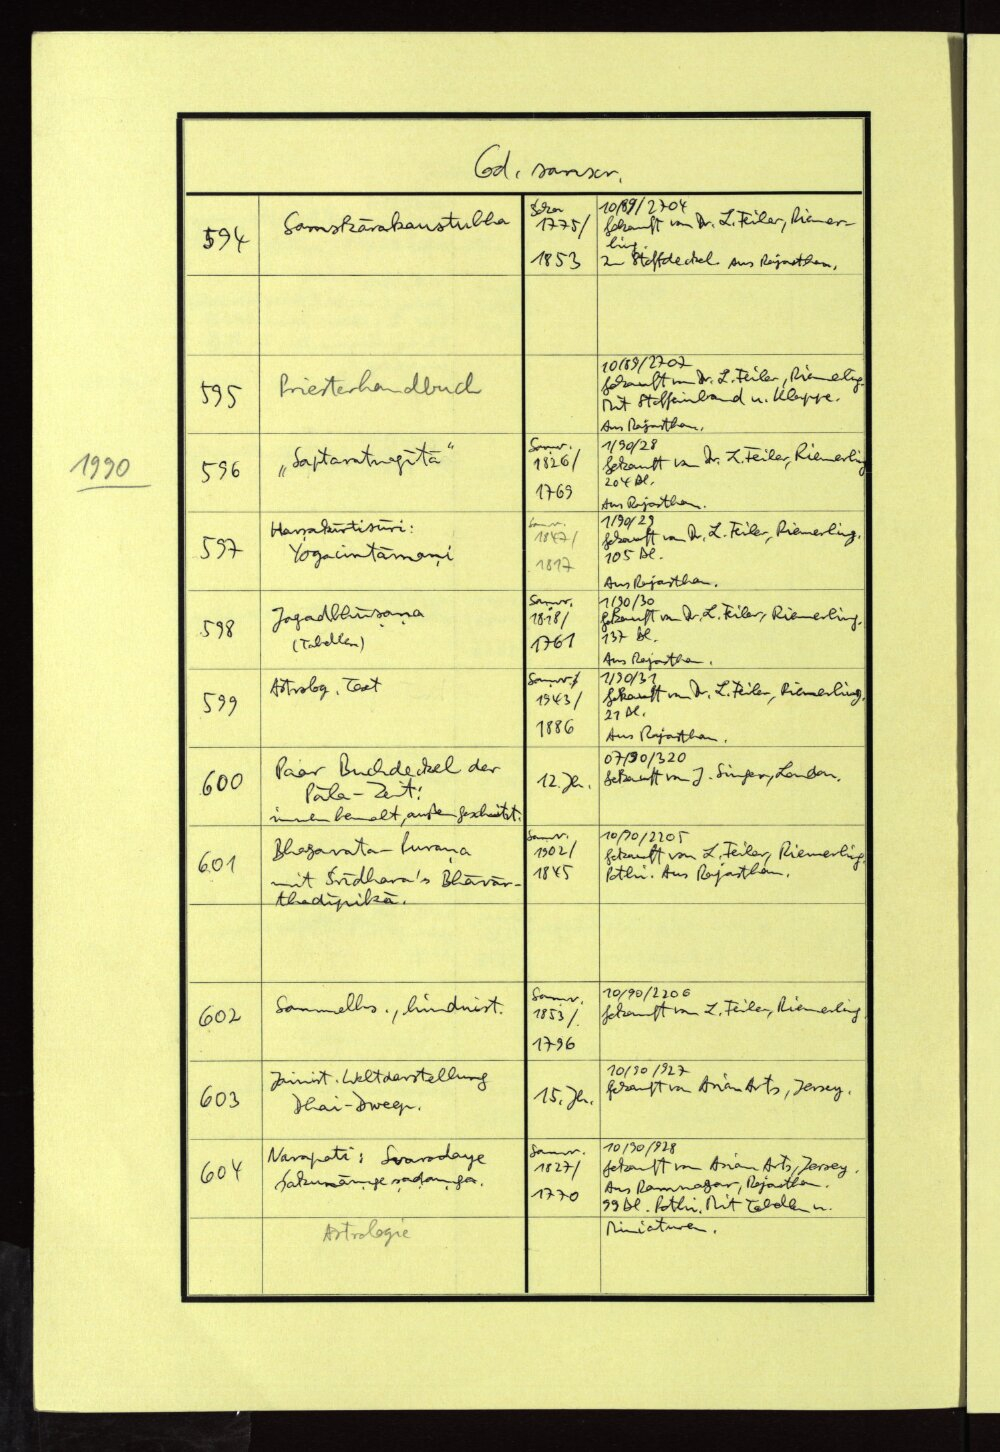 Cod. sanscr.
594
Saṃskārakaustubha
Śaka
1775/
1853
10/89/2704
Gekauft von Dr. L. Feiler, Riemer-
ling.
In Stoffdeckel. Aus Rajasthan.
595
Priesterhandbuch
10/89/2707
Gekauft von Dr. L. Feiler, Riemerling.
Mit Stoffeinband u. Klappe.
Aus Rajasthan.
1990
596
„Saptaratnagītā“
Samv.
1826/
1769
1/90/28
Gekauft von Dr. L. Feiler, Riemerling
204 Bl.
Aus Rajasthan.
597
Harṣakīrtisūri:
Yogacintāmaṇi
Samv.
1847/
1817
1/90/29
Gekauft von Dr. L. Feiler, Riemerling.
105 Bl.
Aus Rajasthan.
598
Jagadbhūṣaṇa
(Tabellen)
Samv.
1818/
1761
1/90/30
Gekauft von Dr. L. Feiler, Riemerling.
137 Bl.
Aus Rajasthan.
599
Astrolog. Text
Samv.
1943/
1886
1/90/31
Gekauft von Dr. L. Feiler, Riemerling.
21 Bl.
Aus Rajasthan.
600
Paar Buchdeckel der
Pāla-Zeit:
innen bemalt, außen geschnitzt.
12. Jh.
07/90/320
Gekauft von J. Singer, London.
601
Bhagavata-Purāṇa
mit Śrīdhara's Bhāvār-
thadīpikā.
Samv.
1902/
1845
10/90/2205
Gekauft von L. Feiler, Riemerling
Pothi. Aus Rajasthan.
602
Sammelhs., hinduist.
Samv.
1853/
1796
10/90/2206
Gekauft von L. Feiler, Riemerling.
603
Jainist. Weltdarstellung
Dhai-Dweep.
15. Jh.
10/90/927
Gekauft von Asian Arts, Jersey.
604
Narapati: Svarodaye
ṣaḍaṃga.
Samv.
1827/
1770
10/90/928
Gekauft von Asian Arts, Jersey.
Aus Ramnagar, Rajasthan.
99 Bl. Pothi. Mit Tabellen u.
Astrologie
Miniaturen.